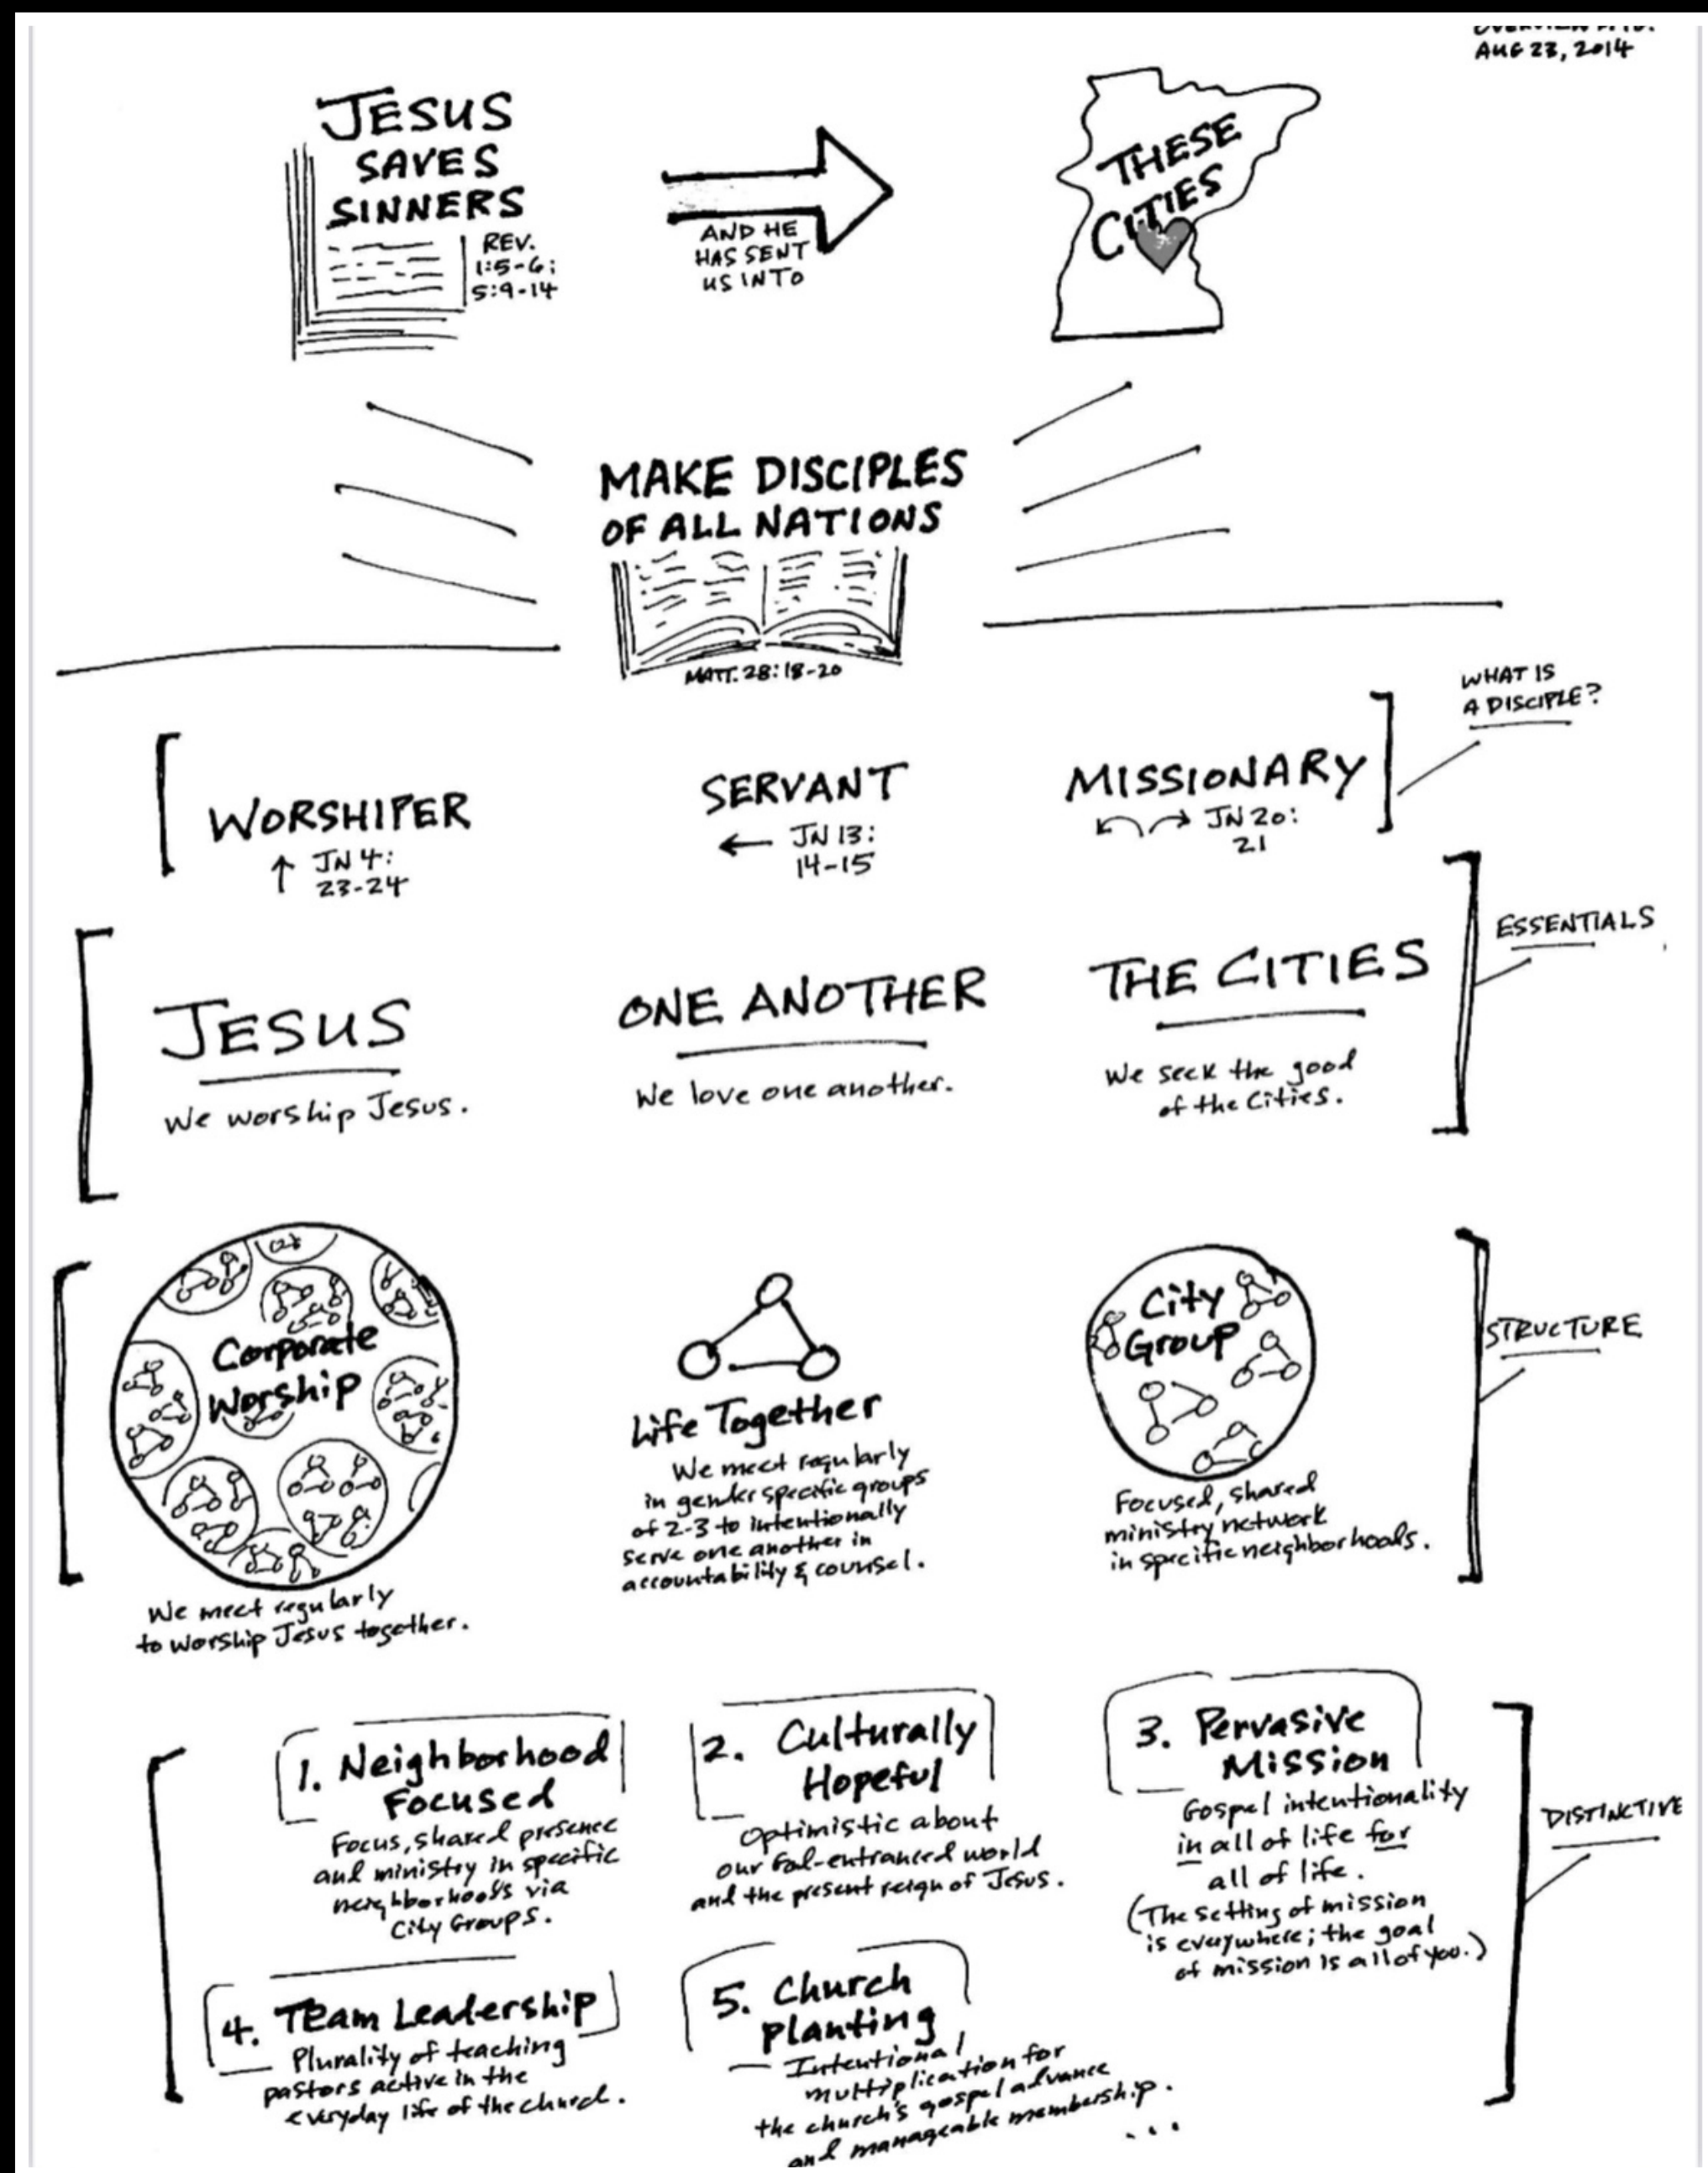 AUG 23, 2014
JESUS
SAVES
SINNERS
REV.
1:5-6;
5:9-14
AND HE
HAS SENT
US INTO
THESE
CITIES
MAKE DISCIPLES
OF ALL NATIONS
MATT. 28:18-20
WHAT IS
A DISCIPLE?
WORSHIPER
↑ JN 4:
23-24
SERVANT
← JN 13:
14-15
MISSIONARY
JN 20:
21
ESSENTIALS
JESUS
We worship Jesus.
ONE ANOTHER
We love one another.
THE CITIES
We seek the good
of the Cities.
STRUCTURE
Corporate
Worship
We meet regularly
to worship Jesus together.
Life Together
We meet regularly
in gender specific groups
of 2-3 to intentionally
serve one another in
accountability & counsel.
City
Group
Focused, shared
ministry network
in specific neighborhoods.
DISTINCTIVE
1. Neighborhood
Focused
Focus, shared presence
and ministry in specific
neighborhoods via
City Groups.
2. Culturally
Hopeful
Optimistic about
our God-entranced world
and the present reign of Jesus.
3. Pervasive
Mission
Gospel intentionality
in all of life for
all of life.
(The setting of mission
is everywhere; the goal
of mission is all of you.)
4. Team Leadership
Plurality of teaching
pastors active in the
everyday life of the church.
5. Church
Planting
Intentional
multiplication for
the church's gospel advance
and manageable membership.
...